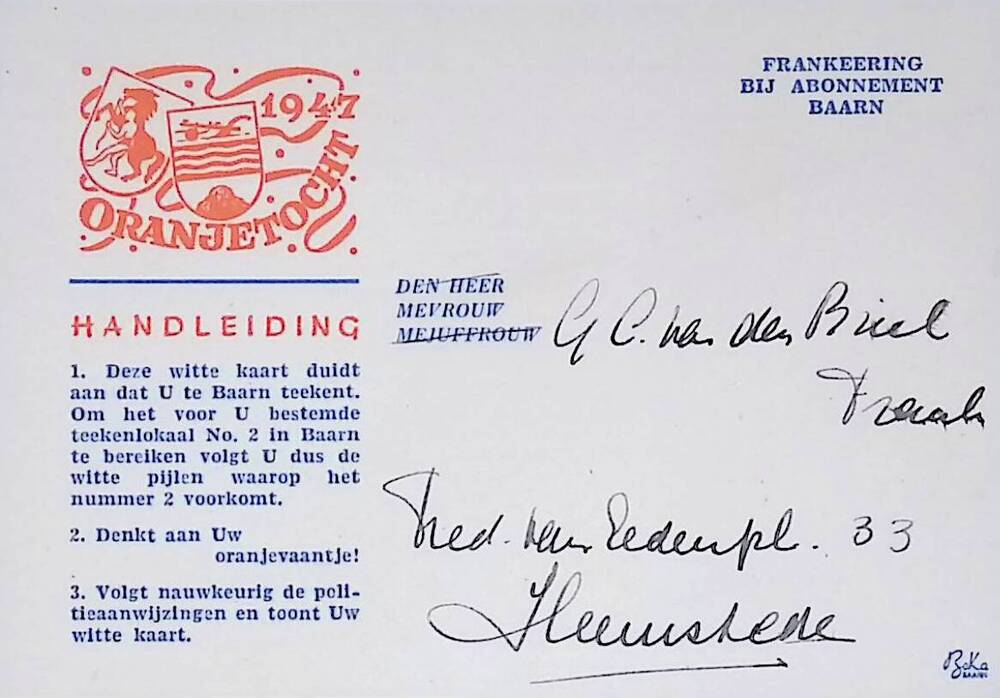 1947
ORANJETOCHT
FRANKEERING
BIJ ABONNEMENT
BAARN
HANDLEIDING
1. Deze witte kaart duidt
aan dat U te Baarn teekent.
Om het voor U bestemde
teekenlokaal No. 2 in Baarn
te bereiken volgt U dus de
witte pijlen waarop het
nummer 2 voorkomt.
2. Denkt aan Uw
oranjevaantje!
3. Volgt nauwkeurig de poli-
tieaanwijzingen en toont Uw
witte kaart.
DEN HEER
MEVROUW
MEJUFFROUW
G C. van den
Fred. van Eedenpl. 33
Heemstede
BeKa
BAARN